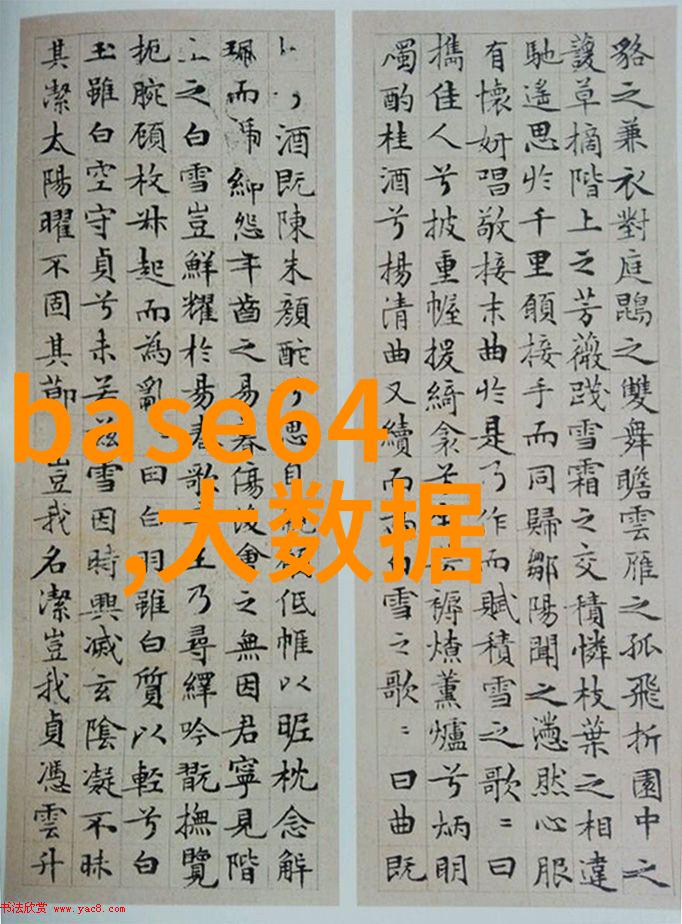 貉之兼衣對庭鵾之雙舞瞻雲雁之孤飛折園中之
蘐草摘階上之芳薇踐雪霜之交積憐枝葉之相違
馳遙思於千里願接手而同歸鄒陽聞之懣然心服
有懷妍唱敬接末曲於是乃作而賦積雪之歌〻曰
攜佳人兮披重幄援綺衾兮芳褥燎薰爐兮炳明
燭酌桂酒兮揚清曲又續而為白雪之歌〻曰曲既
酒既陳朱顏酡兮思自親願低帷以昵枕念解
珮而褫紳怨年齒之易暮傷後會之無因君寧見階
上之白雪豈鮮耀於陽春歌卒王乃尋繹吟翫撫覽
扼腕顧枚叔起而為亂〻曰白羽雖白質以輕兮白
玉雖白空守貞兮未若茲雪因時興滅玄陰凝不昧
其潔太陽曜不固其節豈我名潔豈我貞憑雲升
base64
,大数据
书法欣赏 www.yac8.com